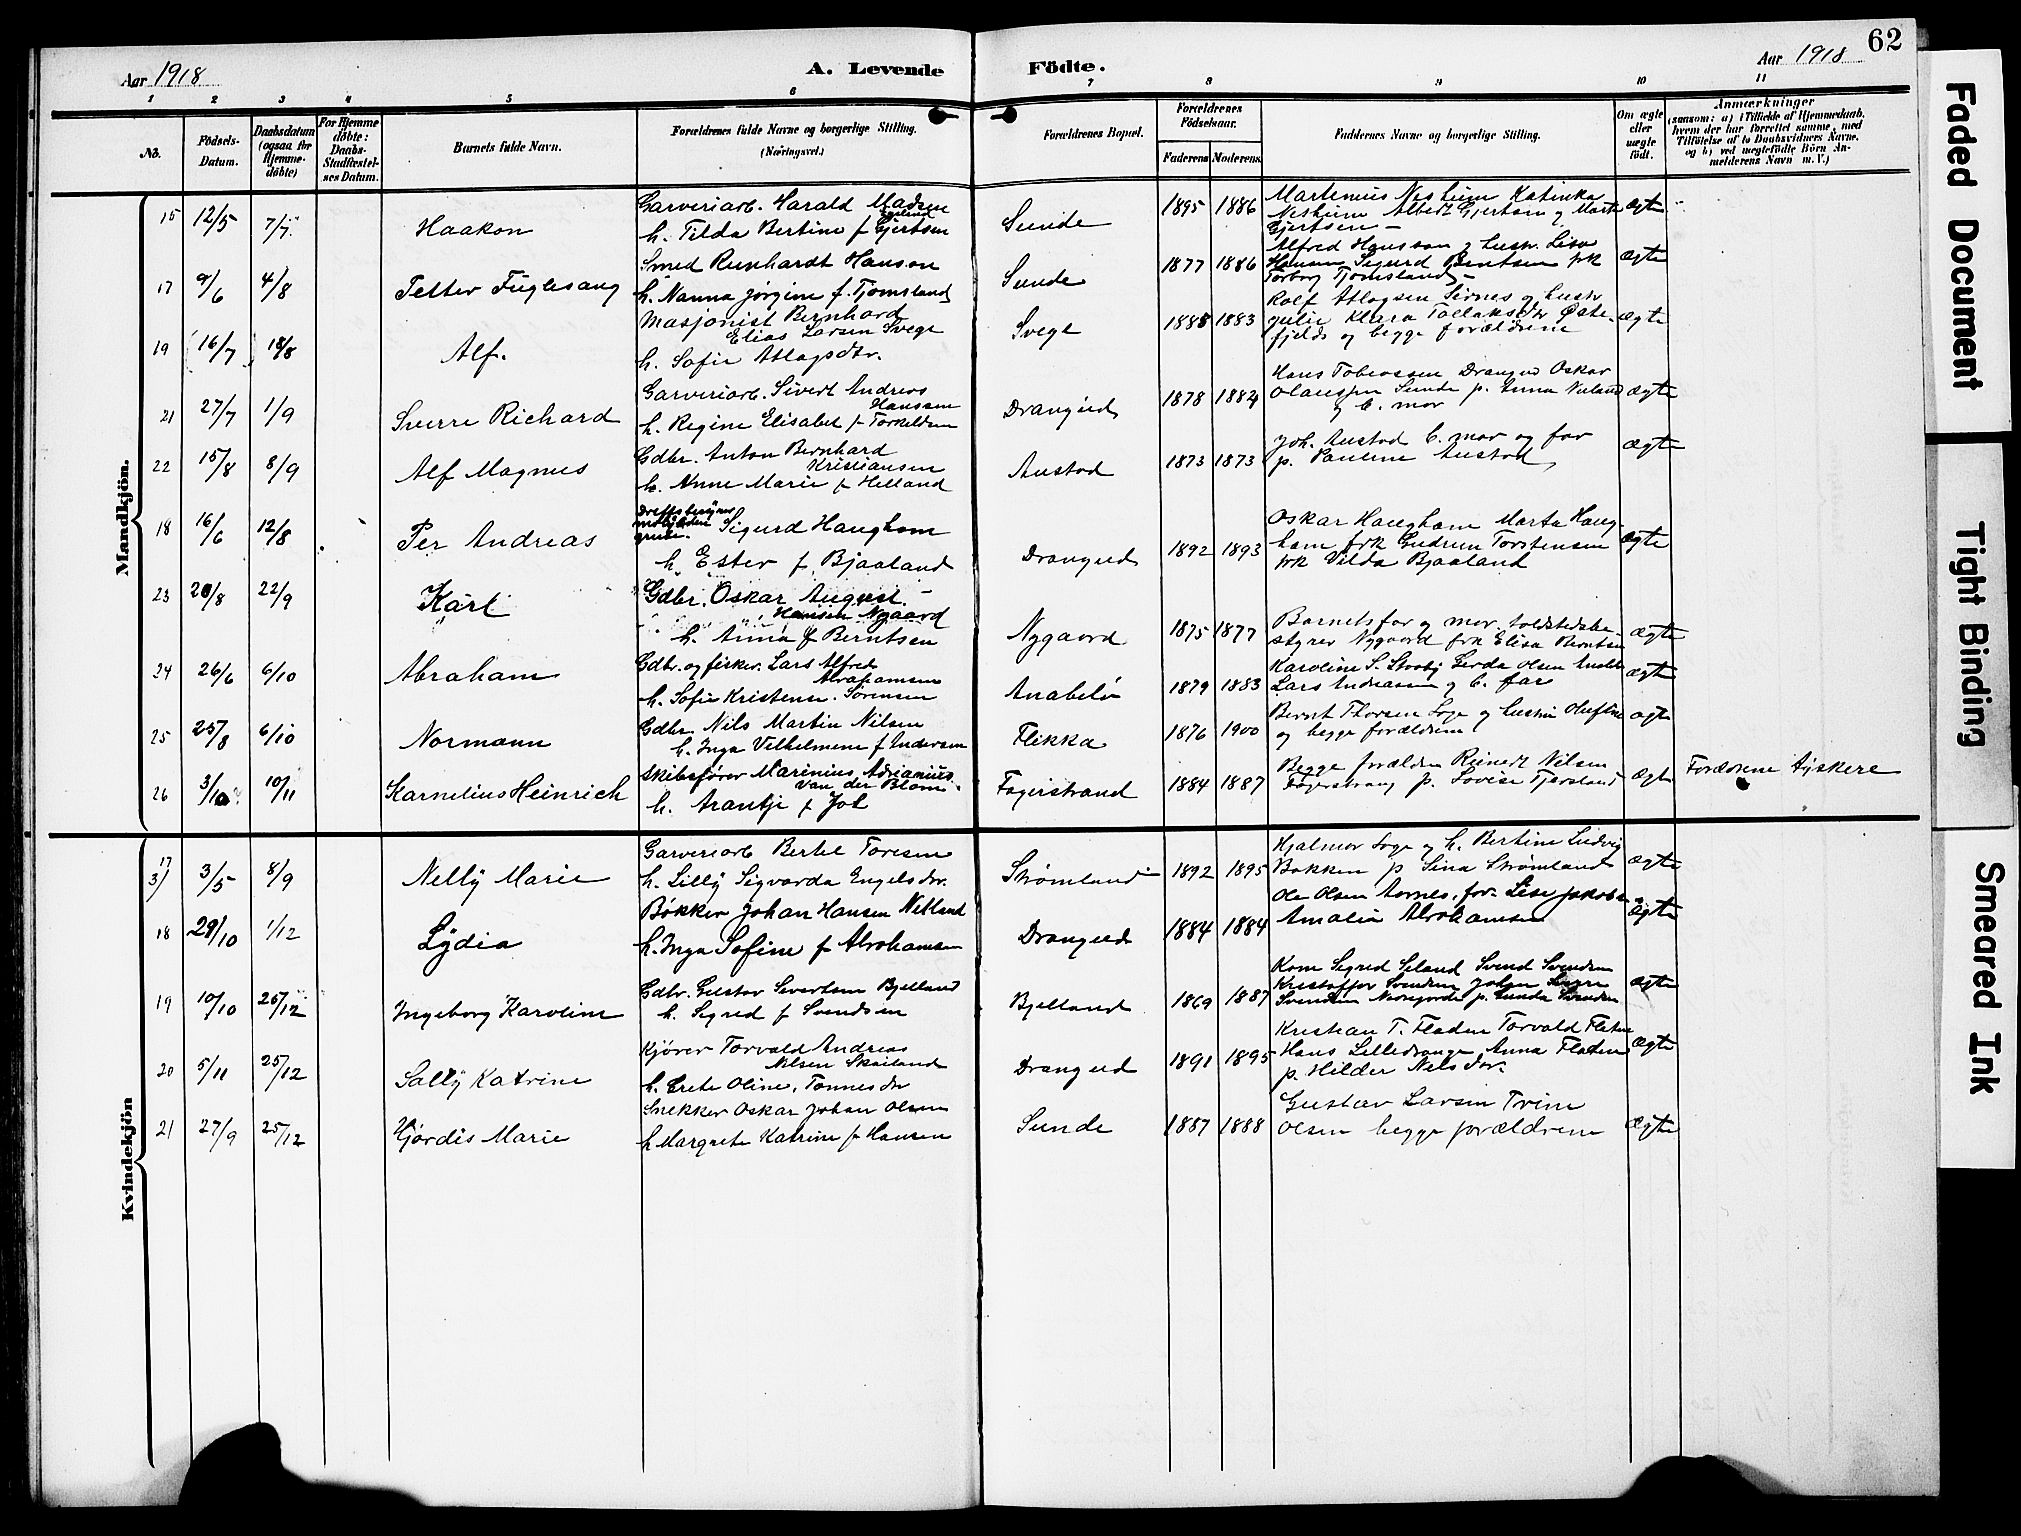 62
Aar 1918
A. Levende Födte.
Aar 1918
1 2 3 4 5 6 7 8 9 10 11
No.
Födsels-
Datum.
Daabsdatum
(ogsaa for
Hjemme-
döbte)
For Hjemme
döbte:
Daabs-
Stadfæstel-
ses Datum.
Barnets fulde Navn.
Forældrenes fulde Navne og borgerlige Stilling.
(Næringsvei.)
Forældrenes Bopæl.
Forældrenes
Födselsaar.
Faderens Moderens
Faddernes Navne og borgerlige Stilling.
Om ægte
eller
uægte
födt.
Anmærkninger
(saasom: a) i Tilfælde af Hjemmedaab,
hvem der har forrettet samme, med
Tilföielse af to Daabsvidners Navne.
og b) ved uægtefödte Börn An-
melderens Navn m. V.)
Mandkjön.
15 12/5 7/7 Haakon
Garveriarb. Harald Madsen
h. Tilda Bertine f Gjertsen
Sunde 1895 1886
Martenius Nesheim Katinka
Nesheim Albert Gjertsen og Marte
Gjertsen -
ægte
17 9/6 4/8 Petter Fuglesang
Smed Reinhardt Hanson
h. Nanna Jørgine f. Tjomsland
Sunde 1877 1886
Alfred Hansson og hustr. Lise
Hansen Sigurd Berntsen frk
Torborg Tjomsland -
ægte
19 16/7 18/8 Alf.
Masjonist Bernhard
Elias Larsen Svege
h. Sofie Atlagsdtr.
Svege 1888 1883
Rolf Atlagsen Sirnes og hustr
Julie Klara Tollaksdtr Øste-
fjeld og begge forældrene
ægte
21 27/7 1/9 Sverre Richard
Garveriarb. Sivert Andreas
Hanssen
h. Regine Elisabet f Torkeldsen
Drangeid 1878 1884
Hans Tobiassen Drangeid Oskar
Olaussen Sunde p. Anna Nuland
og b. mor
ægte
22 15/8 8/9 Alf Magnus
Gdbr. Anton Bernhard
Kristiansen
h. Anne Marie f Helland
Austad 1873 1873
Joh. Austad b. mor og far
p. Pauline Austad
ægte
18 16/6 12/8 Per Andreas
Sigurd Haugham
h. Ester f. Bjaaland
Drangeid 1892 1893
Oskar Haugham Marta Haug-
ham frk Gudrun Torstensen
frk Vilda Bjaaland
ægte
23 20/8 22/9 Karl
Gdbr. Oskar August
Hansen Nygaard
h. Anna f Berntsen
Nygaard 1875 1877
Barnets far og mor. toldstedsbe-
styrer Nygaard frk Elisa Berntsen
ægte
24 26/6 6/10 Abraham
Gdbr. og fisker. Lars Alfred
Abrahamsen
h. Sofie Kristense. Sørensen
Anabeløs 1879 1883
Karoline S. Gerda Olsen
Lars Andreassen og b. far
ægte
25 25/8 6/10 Normann
Gdbr Nils Martin Nilsen
h. Inga Vilhelmene f Andersen
Flikka 1876 1900
Bernt Thorsen Loge og hustru
og begge forældrene
ægte
26 3/10 10/11 Karnelius Heinrich
Skibsfører Marinius Adrianus
Van der Blom
h. Arantje f Jol
Fagerstrand 1884 1887
Begge forældre Reinert Nilsen
Fagerstrand p. Lovise Tjersland
ægte
Forældrene tyskere
Kvindekjön
17
3) 3/5 8/9 Nelly Marie
Garveriarb Bertel Toresen
h. Lilly Sigvarda Engelsdtr.
Strømland 1892 1895
Hjalmar Loge og h. Bertine Ludvig
Bakken p Sina Strømland
ægte
18 29/10 1/12 Lydia
Bøkker Johan Hansen Netland
h. Inga Sofine f Abrahamsen
Drangeid 1884 1884
Ole Olsen Aarnes, for. Lise Jakobs-
Amalia Abrahamsen
ægte
19 10/10 26/12 Ingeborg Karoline
Gdbr. Gustav Sivertsen Bjelland
h. Sigred f Svendsen
Bjelland 1869 1887
Kone Sigred Seland Svend Svendsen
Kristoffer Svendsen Johan
Svendsen p. Gunda Svendsen
ægte
20 5/11 25/12 Sally Katrine
Kjører Torvald Andreas
Nilsen Skailand
h. Grete Oline, Tønnesdtr
Drangeid 1891 1895
Kristian T. Fladen Torvald Fladen
Hans Lilledrange Anna Fladen
p. Hilder Nelsdtr.
ægte
21 27/9 25/12 Hjørdis Marie
Snekker Oskar Johan Olsen
h Margrete Katrine f Hansen
Sunde 1887 1888
Gustav Larsen Trine
Olsen begge forældrene
ægte
Faded Document
Tight Binding
Smeared Ink